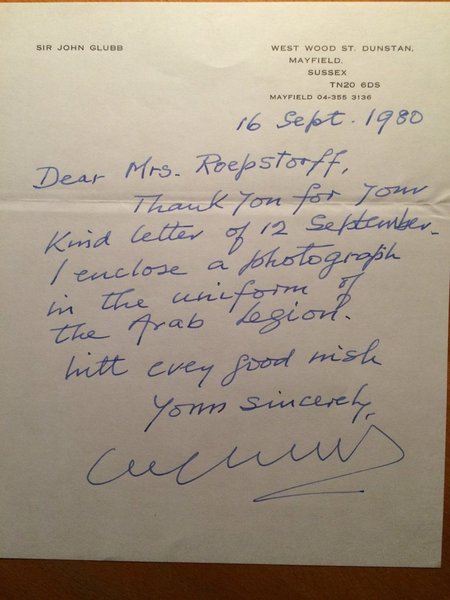 SIR JOHN GLUBB
WEST WOOD ST. DUNSTAN,
MAYFIELD,
SUSSEX
TN20 6DS
MAYFIELD 04-355 3136
16 Sept. 1980
Dear Mrs. Roepstorff,
Thank you for your
kind letter of 12 September.
I enclose a photograph
in the uniform of
the Arab Legion.
With every good wish
Yours sincerely,